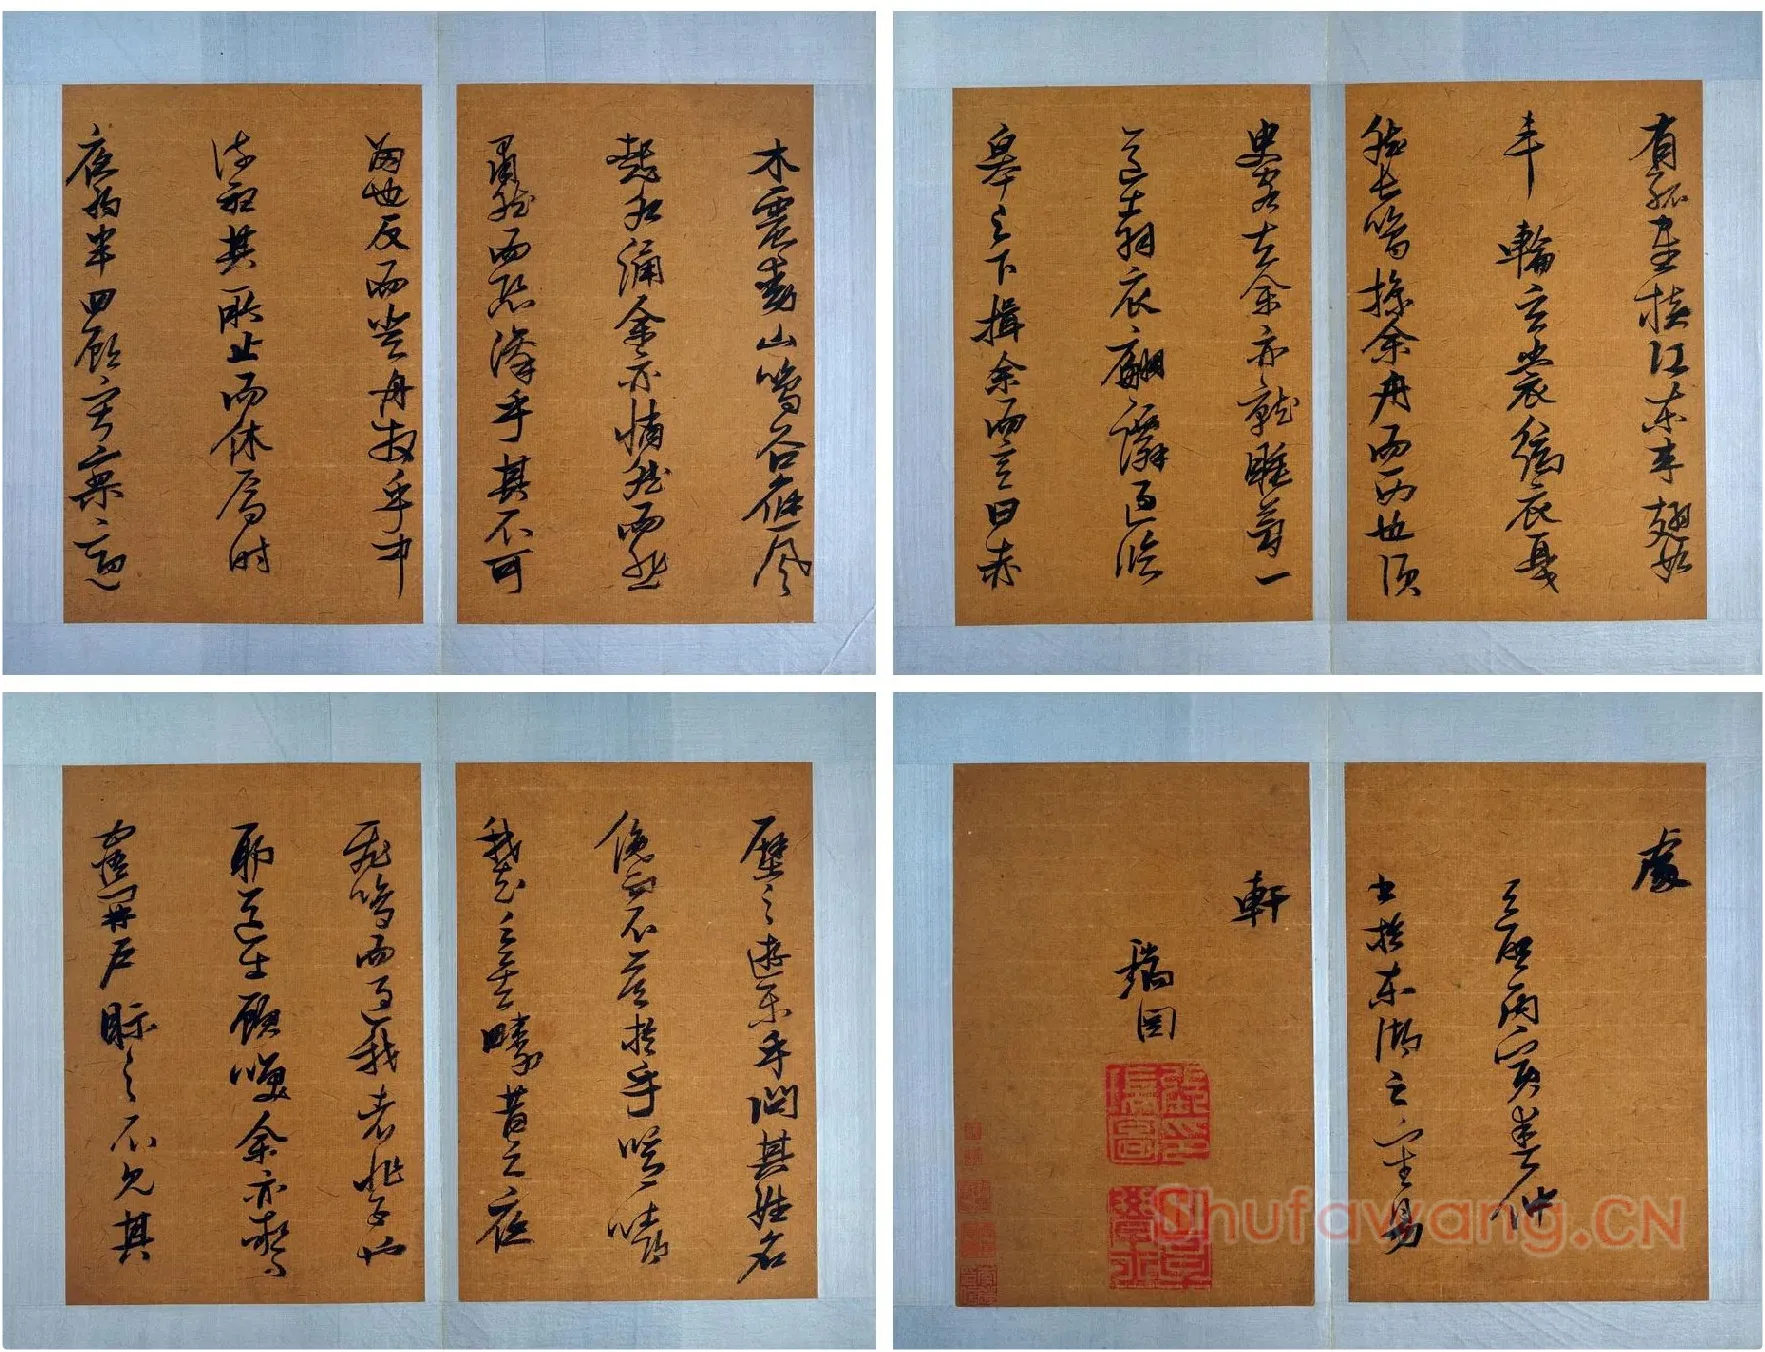 木震動山鳴谷應風
起水涌余亦悄然而悲
肅然而恐凜乎其不可
留也反而登舟放乎中
流聽其所止而休焉時
夜將半四顧寂寥適
有孤鶴橫江東來翅如
車輪玄裳縞衣戛
然長鳴掠余舟而西也須
臾客去余亦就睡夢一
道士羽衣翩躚過臨
皋之下揖余而言曰赤
壁之遊樂乎問其姓名
俛而不答於乎噫嘻
我知之矣疇昔之夜
飛鳴而過我者非子也
耶道士顧笑余亦驚
寤開戶視之不見其
處
天啟丙寅春仲
書於東湖之
軒
瑞圖
Shufawang.CN